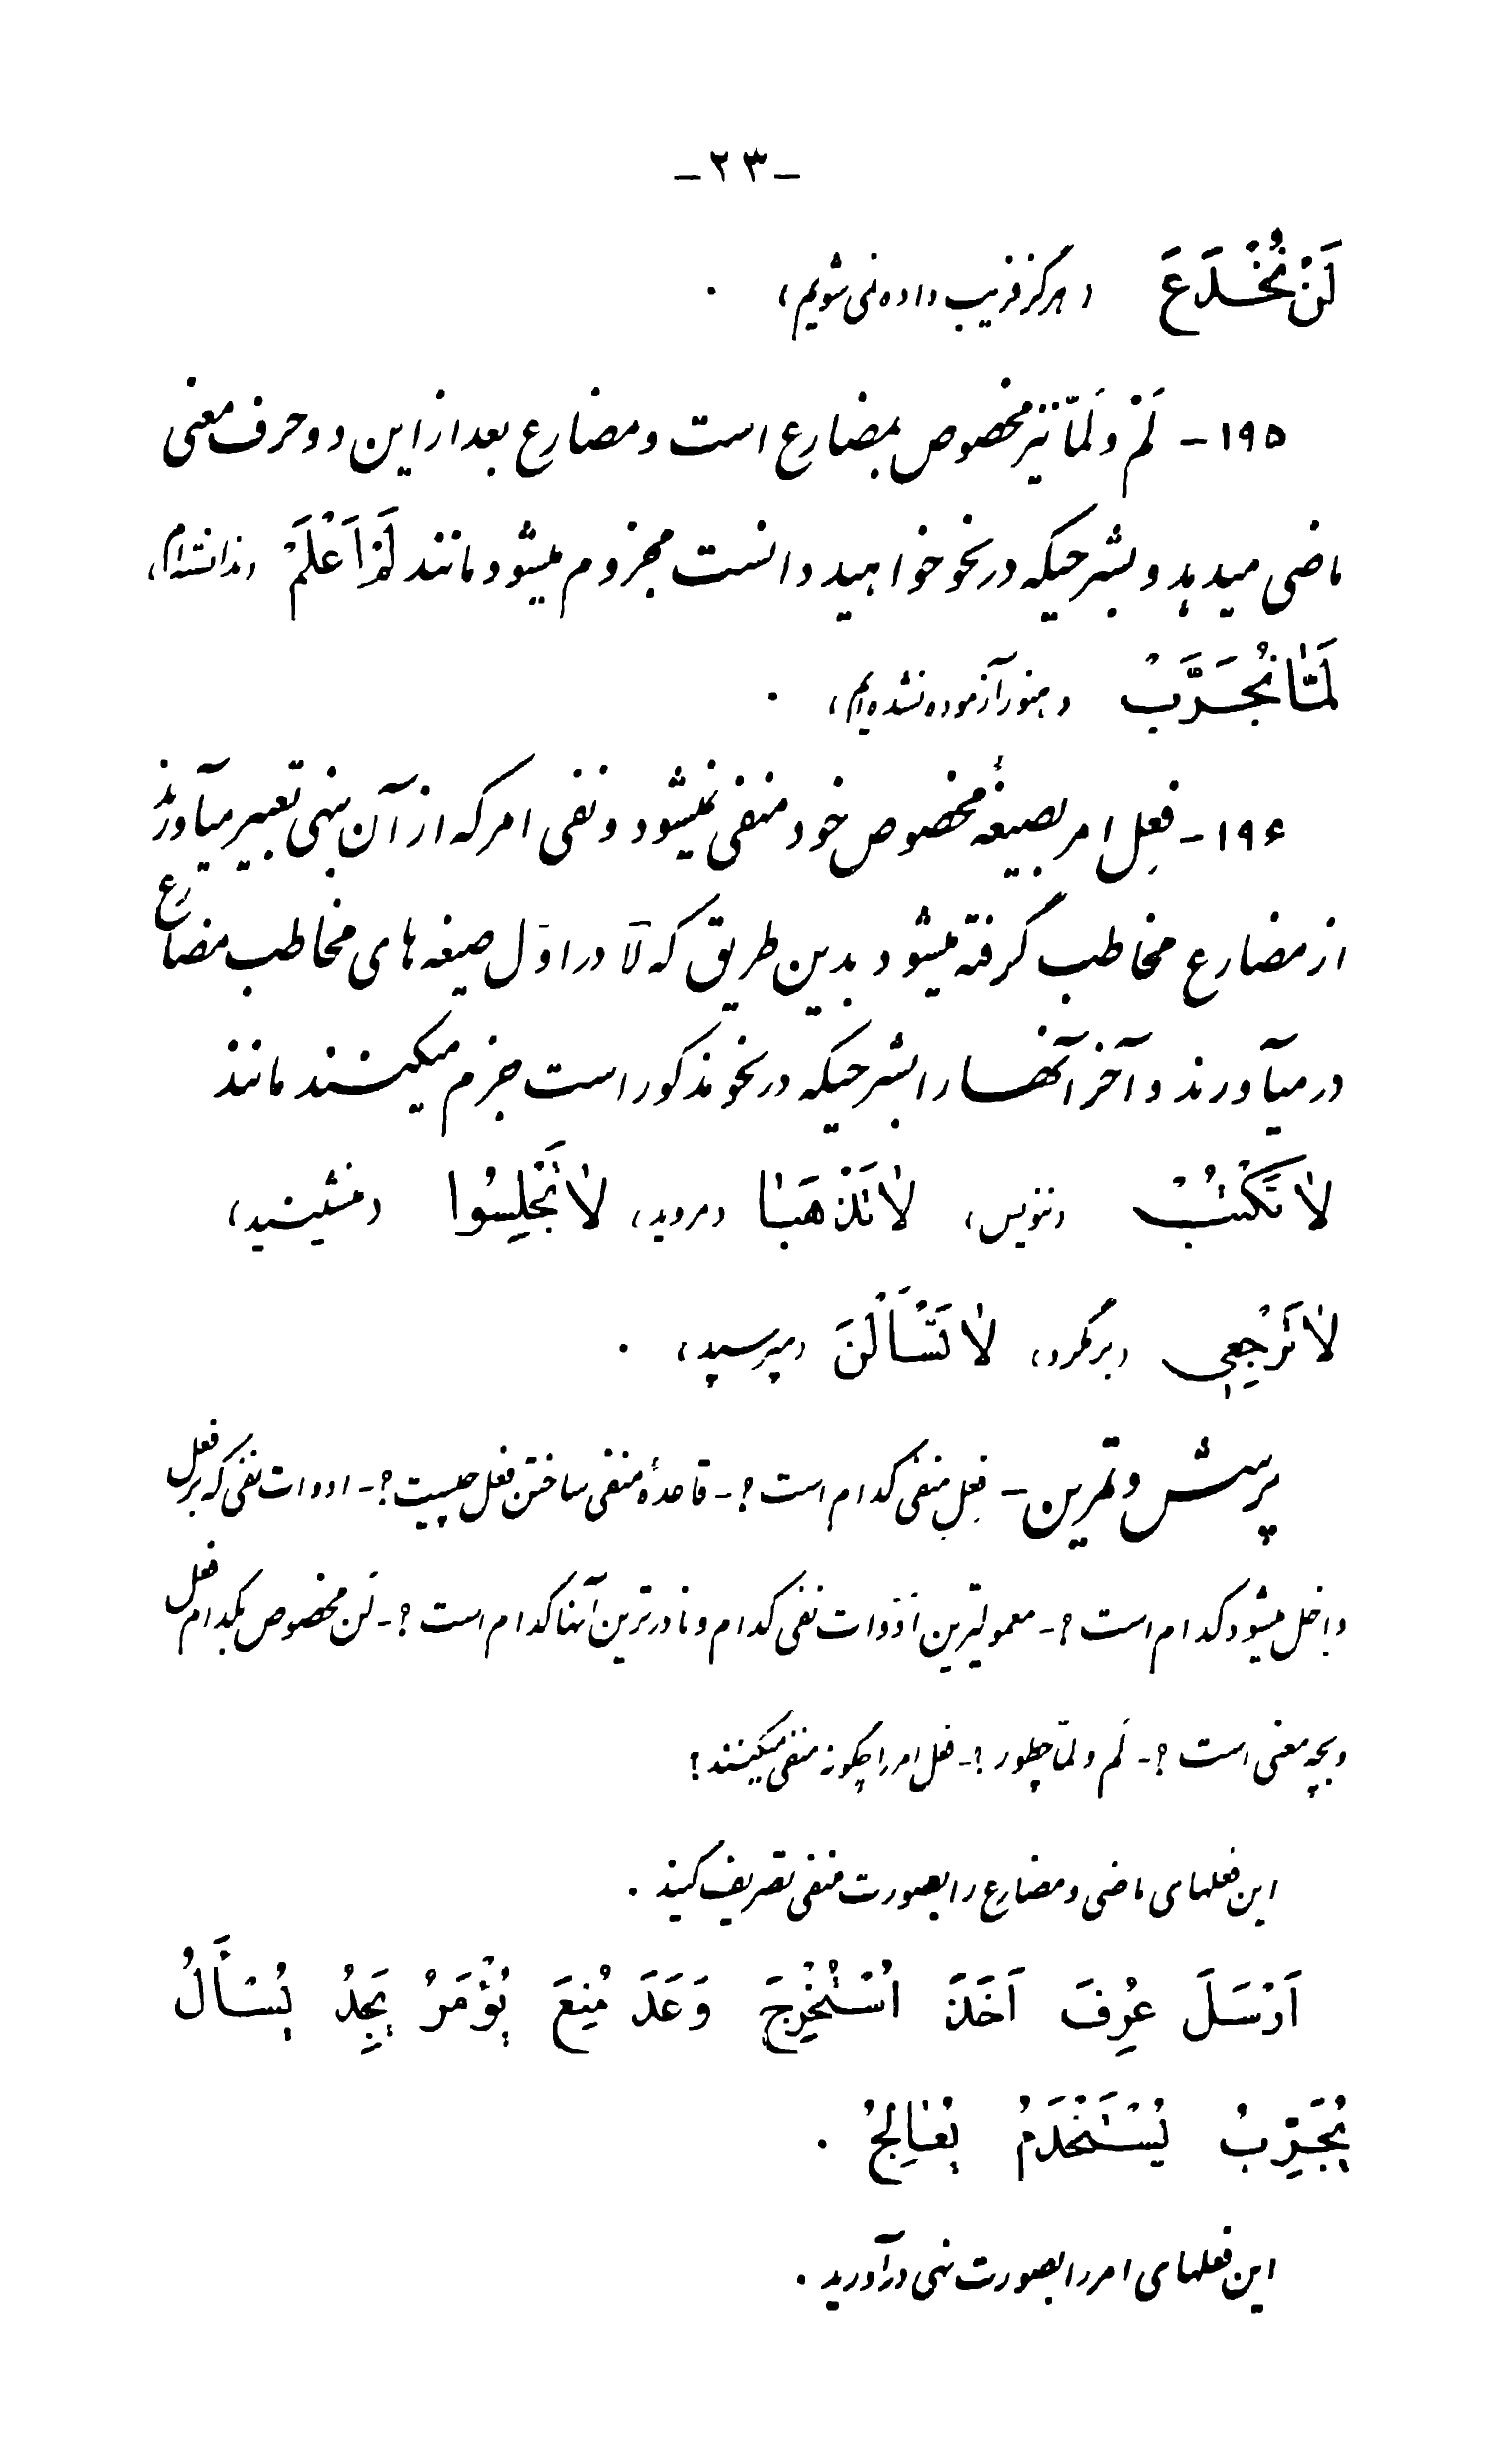 -۲۳-
لَنْ نُخْدَعَ (هرگز فریب داده نمی شویم) .
۱۹۵- لَمْ و لَمّا نیز مخصوص بمضارع است و مضارع بعد از این دو حرف معنی
ماضی میدهد و بشرحیکه در نحو خواهید دانست مجزوم میشود مانند لَمْ اَعْلَمْ (ندانسته‌ام)
لَمّٰا نُجَرَّبْ (هنوز آزموده نشده‌ایم) .
۱۹۶- فعِل امر بصیغهٔ مخصوص خود منفی نمیشود و نفی امر که از آن بنهی تعبیر میآورند
از مضارع مخاطب گرفته میشود بدین طریق که لآ در اوّل صیغه های مخاطب مضارع
در میآورند و آخر آنها را بشرحیکه در نحو مذکور است جزم میکنند مانند
لاٰ تَكْتُبْ (ننویس) لاٰ تَذْهَبٰا (مروید) لاٰ تَجْلِسُوا (منشینید)
لاٰ تَرْجِعِي (برنگرد) لاٰ تَسْأَلْنَ (مپرسید) .
پرسش و تمرین - فعِل منفی کدام است ؟- قاعدهٔ منفی ساختن فعل چیست ؟- ادوات نفی که بر فعل
داخل میشود کدام است ؟- معمولیترین اَدَوات نفی کدام و نادرترین آنها کدام است ؟- لَن مخصوص بکدام فعل
و بچه معنی است ؟- لَم و لمّا چطور ؟- فعل امر را چگونه منفی میکنند ؟
این فعلهای ماضی و مضارع را بصورت منفی تصریف کنید .
اَرْسَلَ عُرِفَ اَخَذَ اُسْتُخْرِجَ وَعَدَ مُنِعَ يُؤْمَرُ يَجِدُ يُسْأَلُ
يُجَرِّبُ يُسْتَخْدَمُ يُعٰالِجُ .
این فعلهای امر را بصورت نهی درآورید .